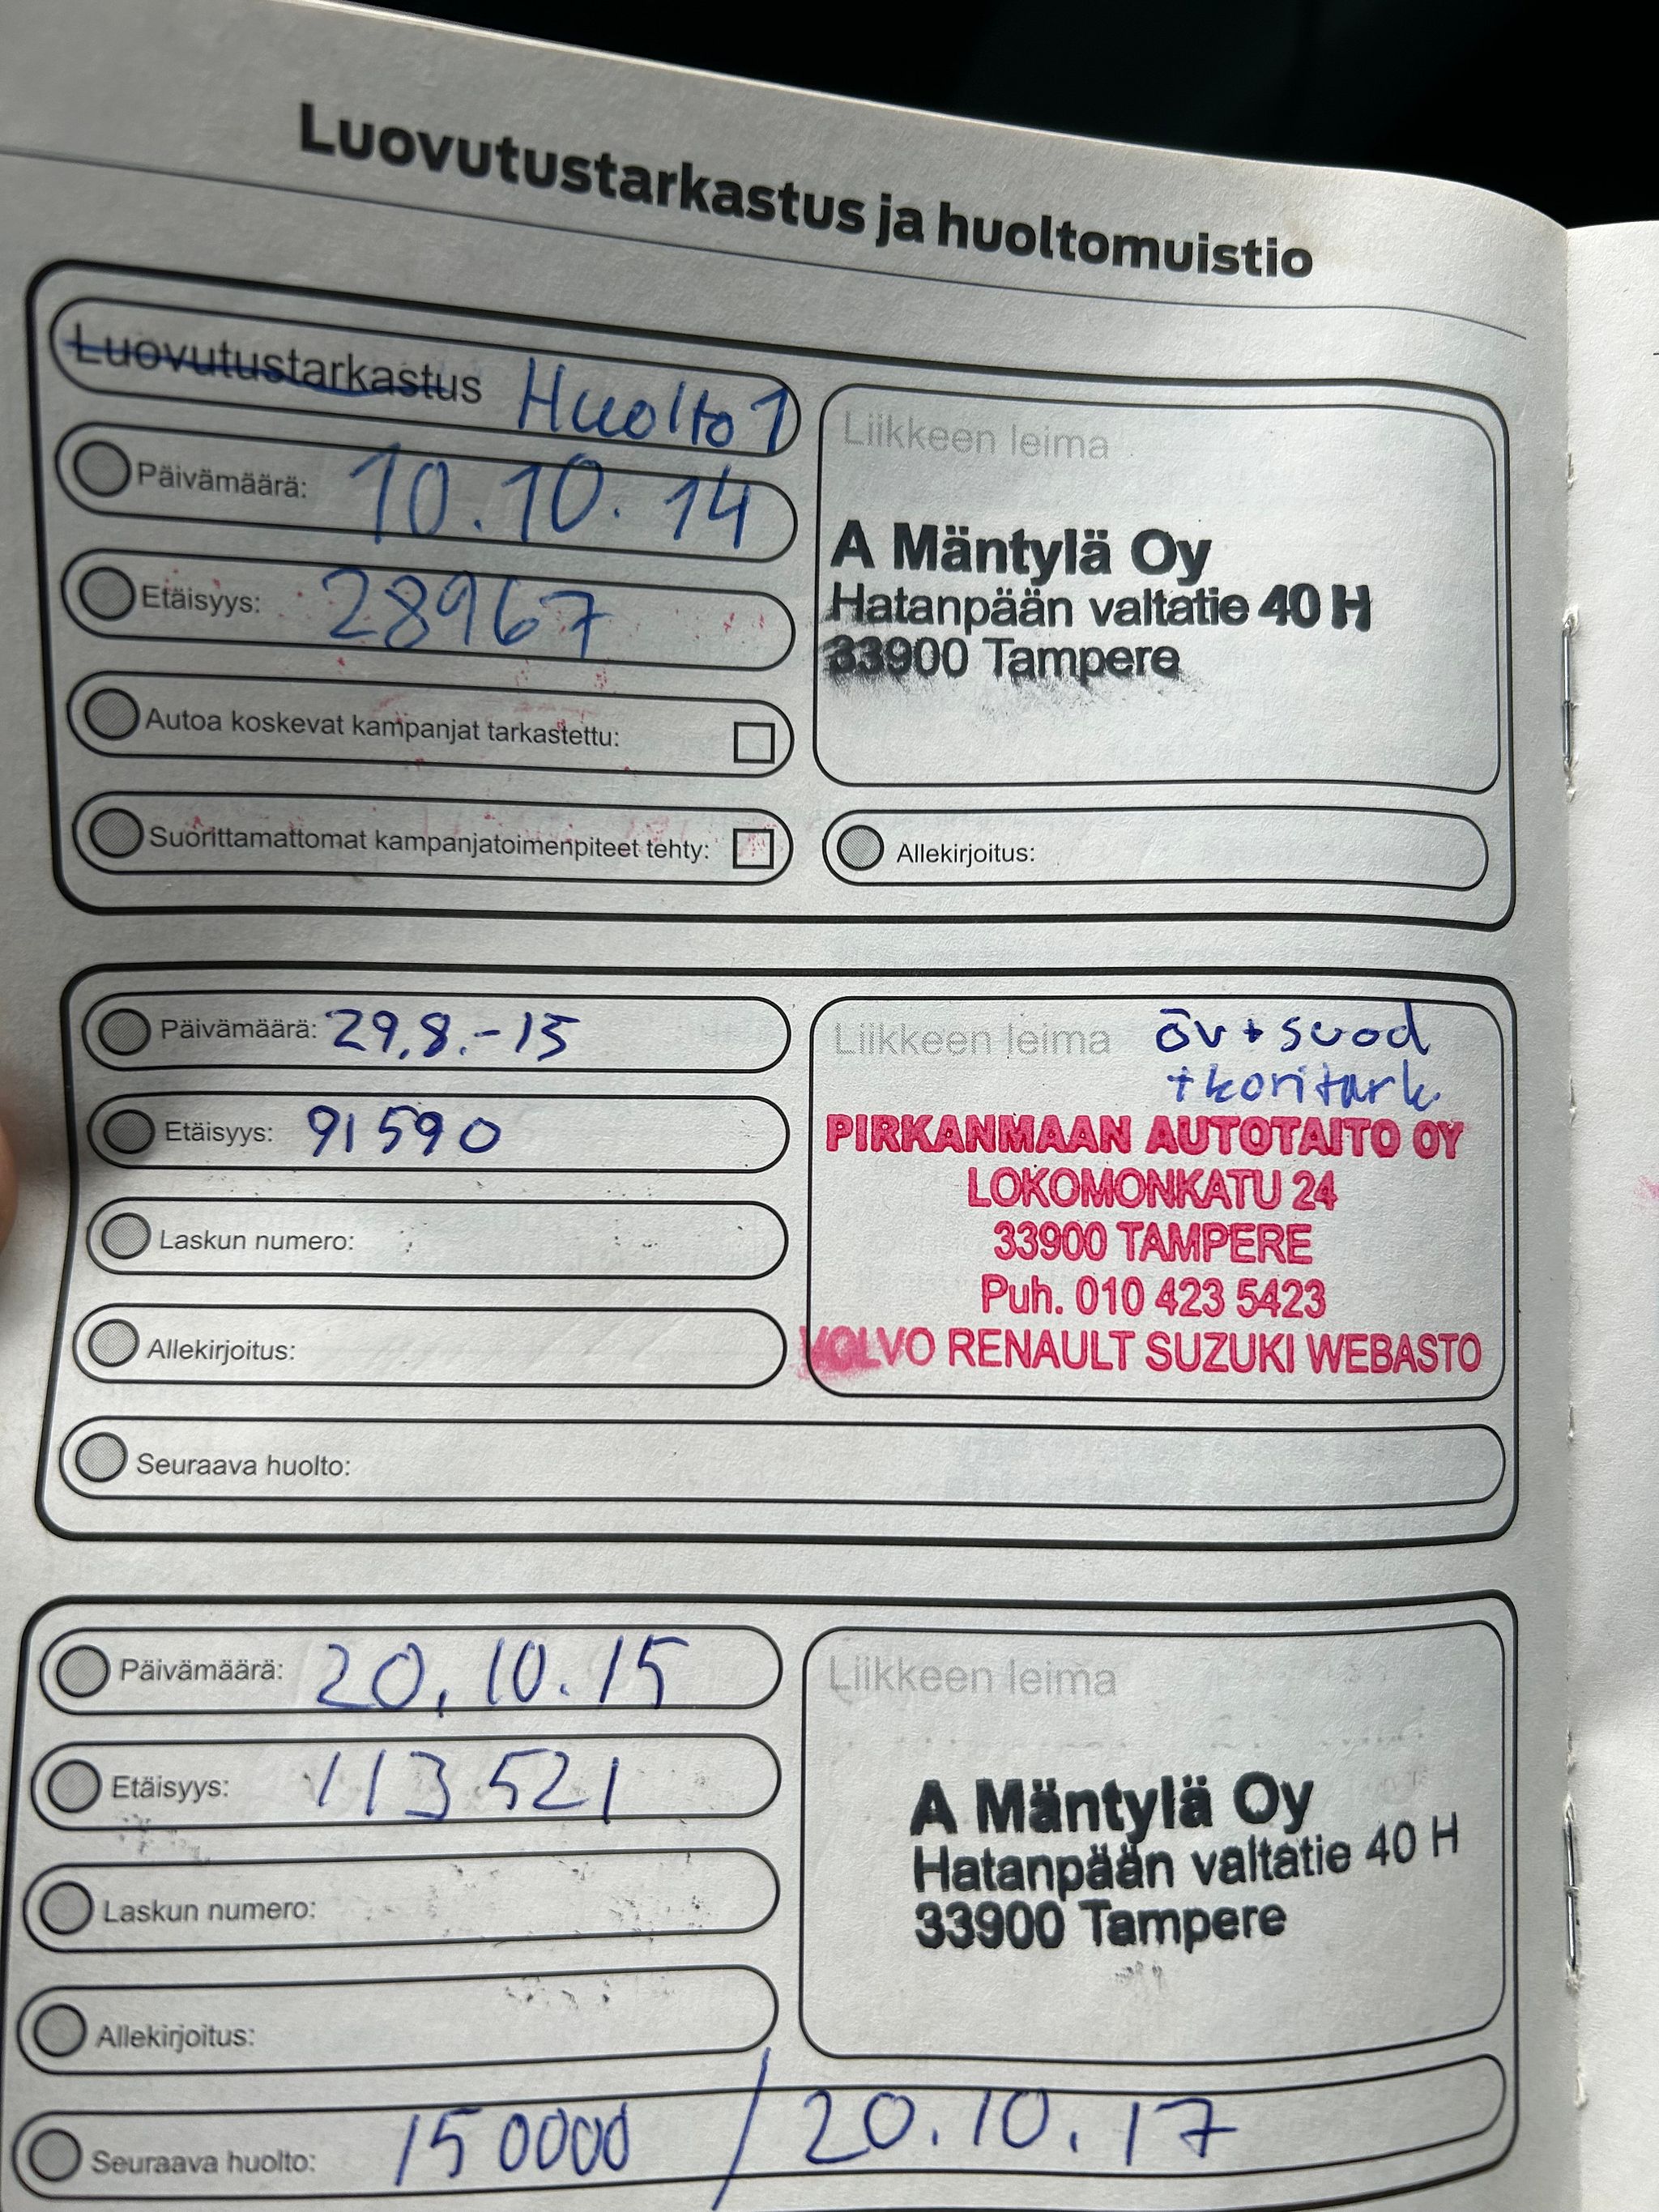 Luovutustarkastus ja huoltomuistio
Luovutustarkastus Huolto 1
Päivämäärä: 10.10.14
Etäisyys: 28967
Autoa koskevat kampanjat tarkastettu:
Suorittamattomat kampanjatoimenpiteet tehty:
Liikkeen leima
A Mäntylä Oy
Hatanpään valtatie 40 H
33900 Tampere
Allekirjoitus:
Päivämäärä: 29.8.-15
Etäisyys: 91590
Laskun numero:
Allekirjoitus:
Liikkeen leima öv+suod
+koritark.
PIRKANMAAN AUTOTAITO OY
LOKOMONKATU 24
33900 TAMPERE
Puh. 010 423 5423
VOLVO RENAULT SUZUKI WEBASTO
Seuraava huolto:
Päivämäärä: 20.10.15
Etäisyys: 113521
Laskun numero:
Allekirjoitus:
Liikkeen leima
A Mäntylä Oy
Hatanpään valtatie 40 H
33900 Tampere
Seuraava huolto: 150000 / 20.10.17